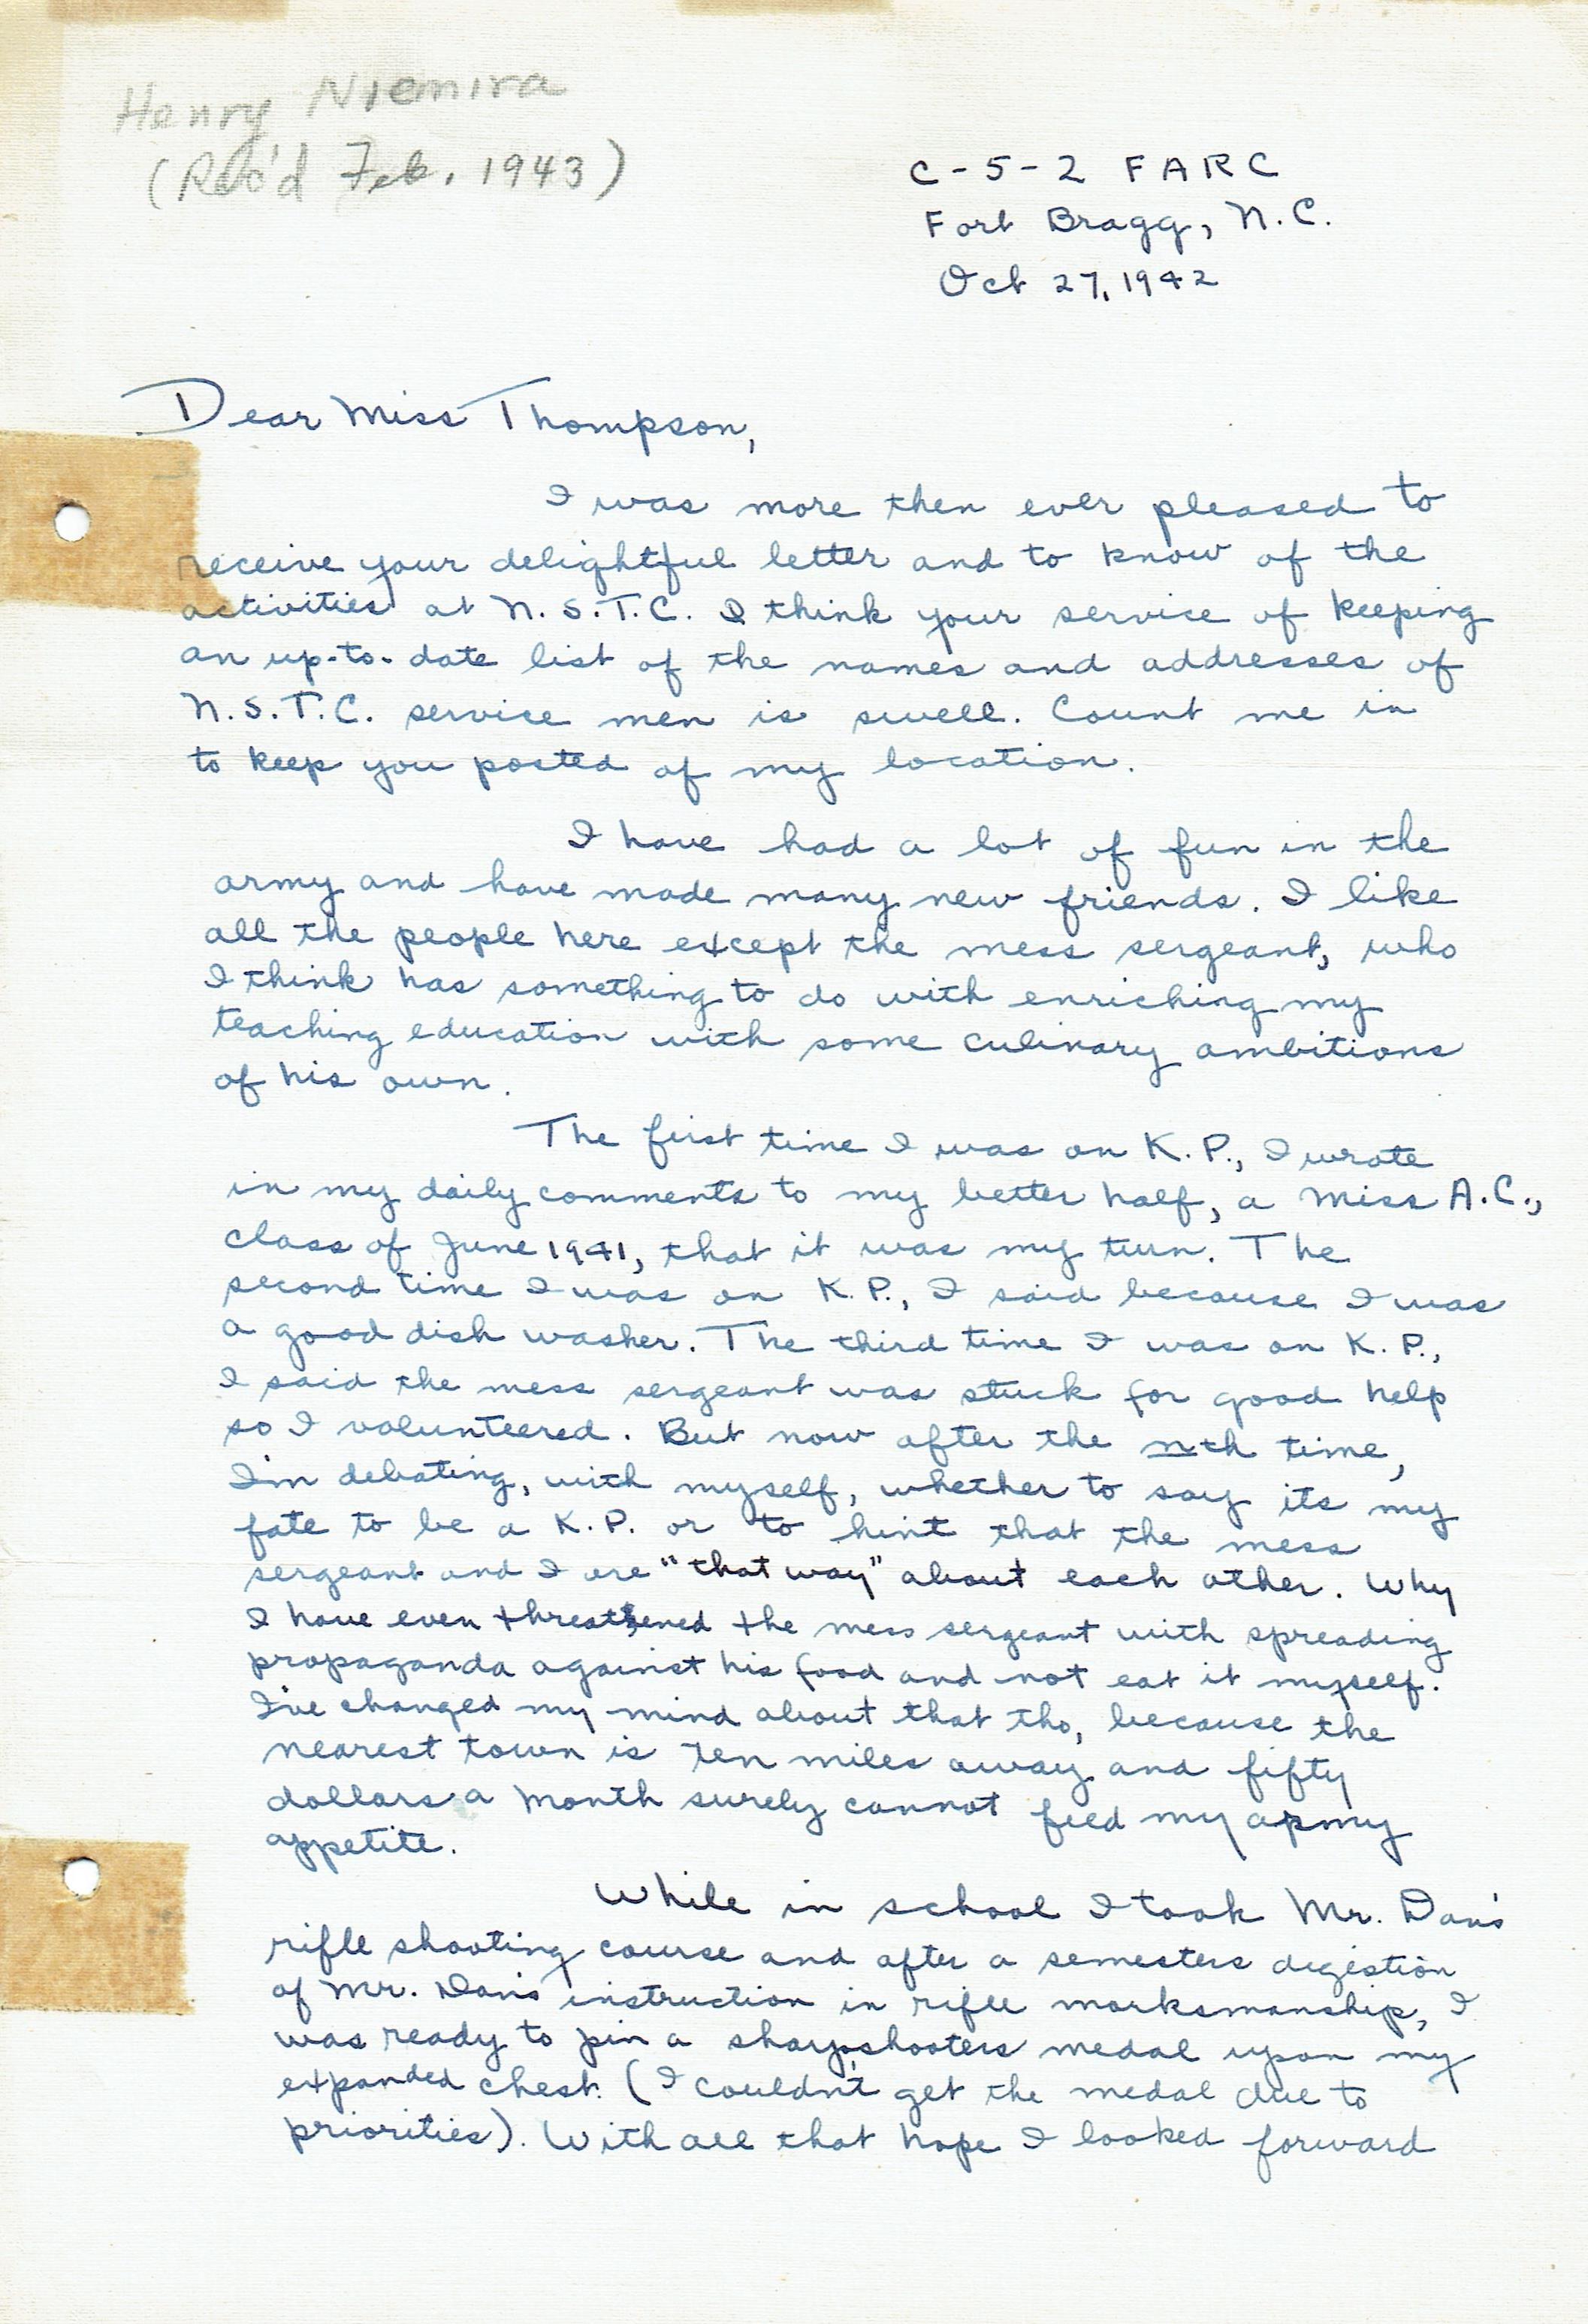 Henry Niemira
(Rec'd Feb. 1943)
C-5-2 FARC
Fort Bragg, N.C.
Oct 27, 1942
Dear Miss Thompson,
I was more then ever pleased to
receive your delightful letter and to know of the
activities at N.S.T.C. I think your service of keeping
an up-to-date list of the names and addresses of
N.S.T.C. service men is swell. Count me in
to keep you posted of my location.
I have had a lot of fun in the
army and have made many new friends. I like
all the people here except the mess sergeant, who
I think has something to do with enriching my
teaching education with some culinary ambitions
of his own.
The first time I was on K.P., I wrote
in my daily comments to my better half, a Miss A.C.,
class of June 1941, that it was my turn. The
second time I was on K.P., I said because I was
a good dish washer. The third time I was on K.P.,
I said the mess sergeant was stuck for good help
so I volunteered. But now after the nth time,
I'm debating, with myself, whether to say its my
fate to be a K.P. or to hint that the mess
sergeant and I are "that way" about each other. Why
I have even threatened the mess sergeant with spreading
propaganda against his food and not eat it myself.
I've changed my mind about that tho, because the
nearest town is ten miles away and fifty
dollars a month surely cannot feed my army
appetite.
While in school I took Mr.
rifle shooting course and after a semesters digestion
of Mr. instruction in rifle marksmanship, I
was ready to pin a sharpshooters medal upon my
expanded chest. (I couldn't get the medal due to
priorities). With all that hope I looked forward